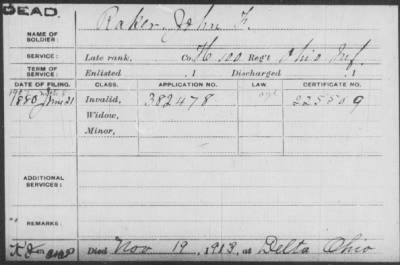 DEAD.
NAME OF SOLDIER: Raker, John F.
SERVICE: Late rank, Co. H 100 Reg't Ohio Inf.
TERM OF SERVICE: Enlisted , 1 Discharged , 1
DATE OF FILING. CLASS. APPLICATION NO. LAW. CERTIFICATE NO.
1880 June 21 Invalid, 382478 225509
Widow,
Minor,
ADDITIONAL SERVICES:
REMARKS:
Died Nov 19, 1913, at Delta Ohio